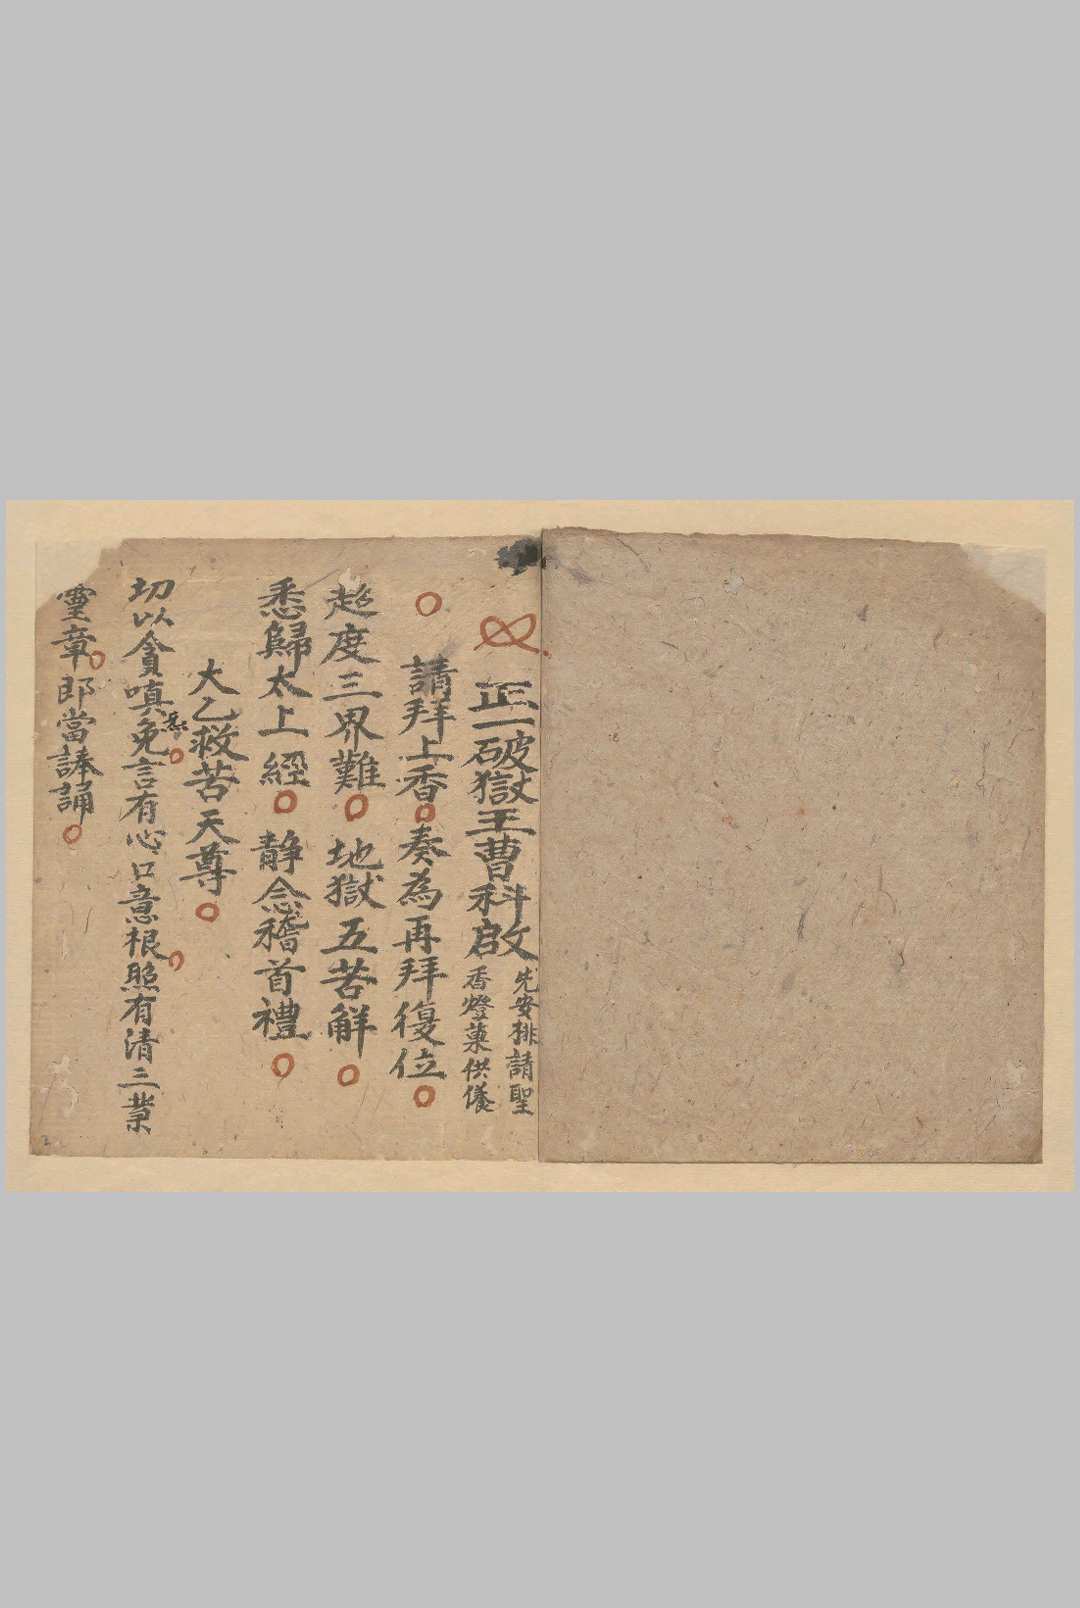 正一破獄王曹科啟 先安排請聖
香燈菓供儀
請拜上香奏為再拜復位
超度三界難地獄五苦解
悉歸太上經靜念稽首禮
大乙救苦天尊
切以貪嗔免言有心口意根照有清三業
靈章郎當諫誦